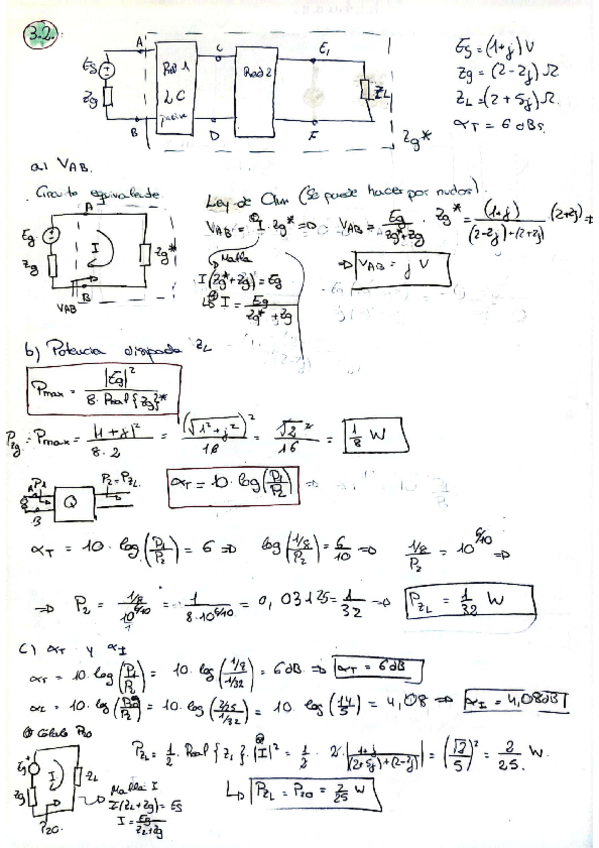 3.2.
A
C
E1
Eg
Zg
Red 1
LC
pasiva
Red 2
ZL
B
D
F
Zg*
Eg = (1+j) V
Zg = (2-2j) Ω
ZL = (2+5j) Ω.
αT = 6 dBs.
a) VAB.
Circuito equivalente
A
Eg
Zg
I
Zg*
B
VAB
Ley de Ohm (Se puede hacer por nudos).
VAB = I · Zg* => VAB = Eg / (Zg*+Zg) · Zg* = (1+j) / ((2-2j)+(2+2j)) · (2+2j) =>
=> VAB = j V
Malla
I (Zg*+Zg) = Eg
I = Eg / (Zg*+Zg)
b) Potencia disipada ZL
Pmax = |Eg|² / (8 · Real{Zg}*)
Pzg = Pmax = |1+j|² / (8·2) = (√(1²+j²))² / 16 = √2² / 16 = 1/8 W
P1
Q
P2 = PZL
B
αT = 10 · log(P1/P2) =>
αT = 10 · log(P1/P2) = 6 => log((1/8)/P2) = 6/10 => (1/8)/P2 = 10^(6/10) =>
=> P2 = (1/8) / 10^(6/10) = 1 / (8·10^(6/10)) = 0,03125 = 1/32 => PZL = 1/32 W
c) αT y αI
αT = 10 · log(P1/P2) = 10 · log((1/8)/(1/32)) = 6 dB => αT = 6 dB
αI = 10 · log(P20/P2) = 10 · log((2/25)/(1/32)) = 10 · log(14/5) = 4,08 => αI = 4,08 dB
Cálculo P20
Eg
Zg
I
ZL
P20
Malla I
I (ZL+Zg) = Eg
I = Eg / (ZL+Zg)
PZL = 1/2 · Real{ZL} · |I|² = 1/2 · 2 · |(1+j) / ((2+5j)+(2-2j))| = (√2/5)² = 2/25 W.
PZL = P20 = 2/25 W